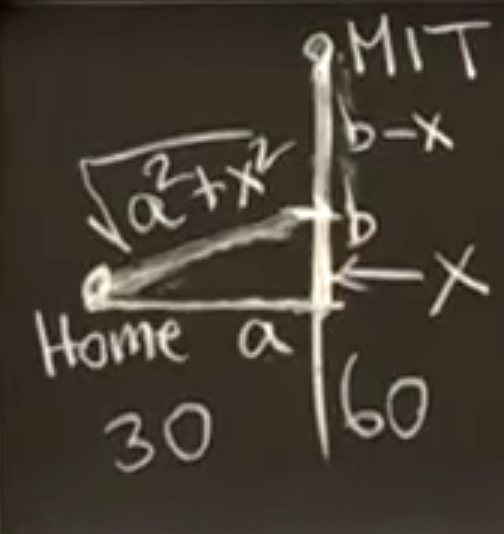 MIT
b-x
√a²+x²
b
x
Home a
30
60